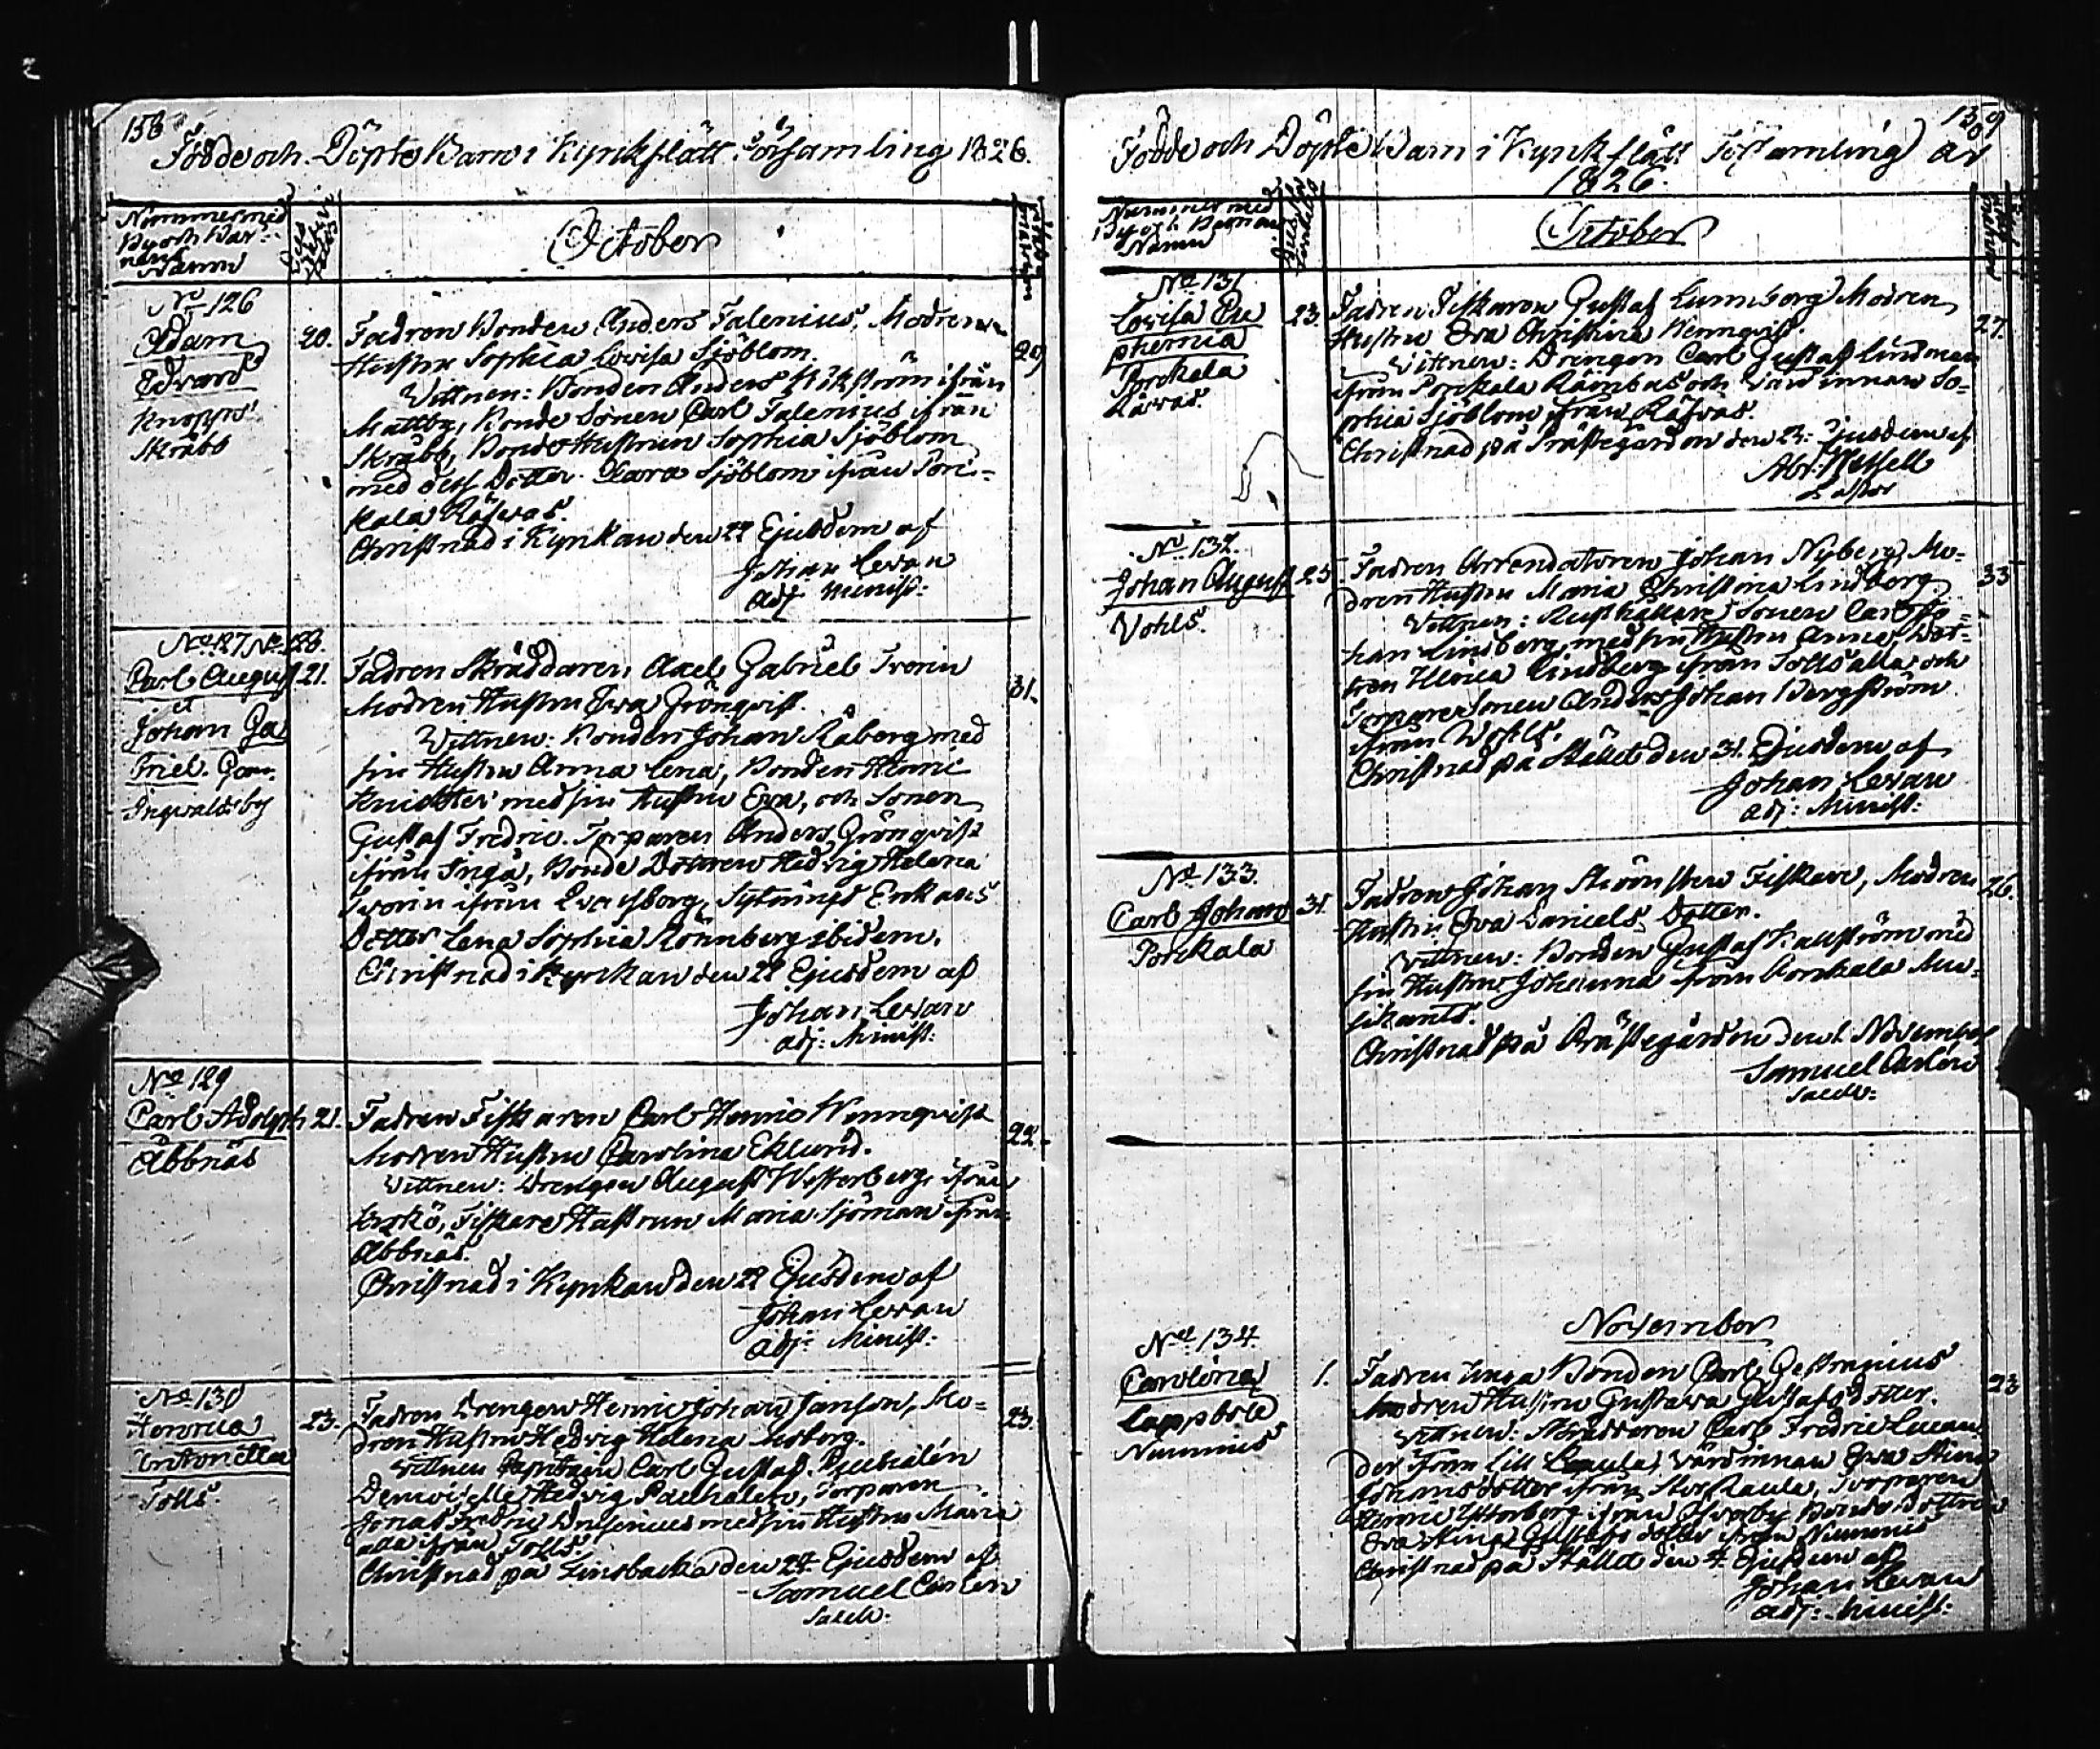 158
Födde och Döpte Barn i Kyrkslätt Församling 1826.
Nummer med
By och Bar-
nens
Namn
October
No 126
Adam
Edvard
Knopps
Skräbb
20.
Fadren Bonden Anders Falenius, Modren
Hustru Sophia Lovisa Sjöblom.
29
Vittnen: Bonden Anders Kökström ifrån
Mattby, Bonde Sonen Carl Falenius ifrån
Skräbb, Bonde Hustrun Sophia Sjöblom
med dess Dotter Clara Sjöblom ifrån Porc-
kala Räfvas.
Christnad i Kyrkan den 22 Ejusdem af
Johan Levan
adj. Minist:
No 127 No 128.
Carl August
et
Johan Ga
briel. Gem.
Ingvaldsby
21.
Fadren Skräddaren Axel Gabriel Trorin
Modren Hustru Eva Grönqvist.
31.
Vittnen: Bonden Johan Råberg med
sin Hustru Anna Lena, Bonden Henric
med sin Hustru Eva, och Sonen
Gustaf Fredric. Torparen Anders Grönqvist
ifrån Ingå, Bonde Dottren Hedvig Helena
ifrån Sytnings Enkans
Dotter Lena Sophia Rönnberg ibidem.
Christnad i Kyrkan den 22 Ejusdem af
Johan Levan
adj: Minist:
No 129
Carl Adolph
Åbbnäs
21.
Fadren Fiskaren Carl Henric Wennqvist
Modren Hustru Carolina Eklund.
22.
Vittnen: Drengen August Westerberg ifrån
Fiskare Hustrun Maria Sjöman ifrån
Åbbnäs.
Christnad i Kyrkan den 22 Ejusdem af
Johan Levan
Adj: Minist:
No 130
Henrica
Antonetta
Tolls.
23.
Fadren Drengen Henric Johan Janson, Mo-
dren Hustru Hedvig Helena Moberg.
23.
Vittnen Carl Gustaf
Demoiselle Hedvig Torparen
Jonas Fredric med sin Hustru Maria
alla ifrån Tolls.
Christnad på Linsbacka den 24 Ejusdem af
Samuel Carlen
Sacell:
159
Födde och Döpte Barn i Kyrkslätt Församling år
1826.
Nummer med
By och Barnens
Namn
October
No 131
Lovisa Eu
phemia
Porckala
Räfvas.
23.
Fadren Fiskaren Gustaf Lunnborg Modren
Hustru Eva Christina Wennqvist.
27.
Vittnen: Drengen Carl Gustaf Lindman
ifrån Porckala Rönbas och Värdinnan So-
phia Sjöblom ifrån Räfvas.
Christnad på Prästegården den 23. Ejusdem af
Abr: Wessell
Pastor
No 132.
Johan August
Vohls.
25.
Fadren Arrendatoren Johan Nyberg, Mo-
dren Hustru Maria Christina Lindberg
33
Vittnen: Rusthållare Sonen Carl Jo-
han Lindberg med sin Hustru Anna, Dot-
tren Ulrica Lindberg ifrån Tolls alla och
Torpare Sonen Anders Johan Bergström
ifrån Wohls.
Christnad på Stället den 31. Ejusdem af
Johan Levan
adj: Minist:
No 133.
Carl Johan
Porckala
31.
Fadren Johan Fiskare, Modren
Hustru Eva Daniels Dotter.
26.
Vittnen: Bonden Gustaf Kallström med
sin Hustru Johanna ifrån Porckala Mu-
sikants.
Christnad på Prästegården den 1. November
Samuel Carlen
Sacell:
November
No 134.
Carolina
Lappböle
Nimmis
1.
Fadren Unga Bonden Carl
Modren Hustru Gustava Gustafs Dotter.
23
Vittnen: Skräddaren Carl Fredric Lucan
der ifrån Lill Kaula, Värdinnan Eva Stina
Johansdotter ifrån Stor Kaula, Torparen
Henric Ytterberg ifrån Bonde Dottren
Eva Stina Gustafs dotter ifrån Nimmis
Christnad på Stället den 4 Ejusdem af
Johan Levan
adj: Minist: